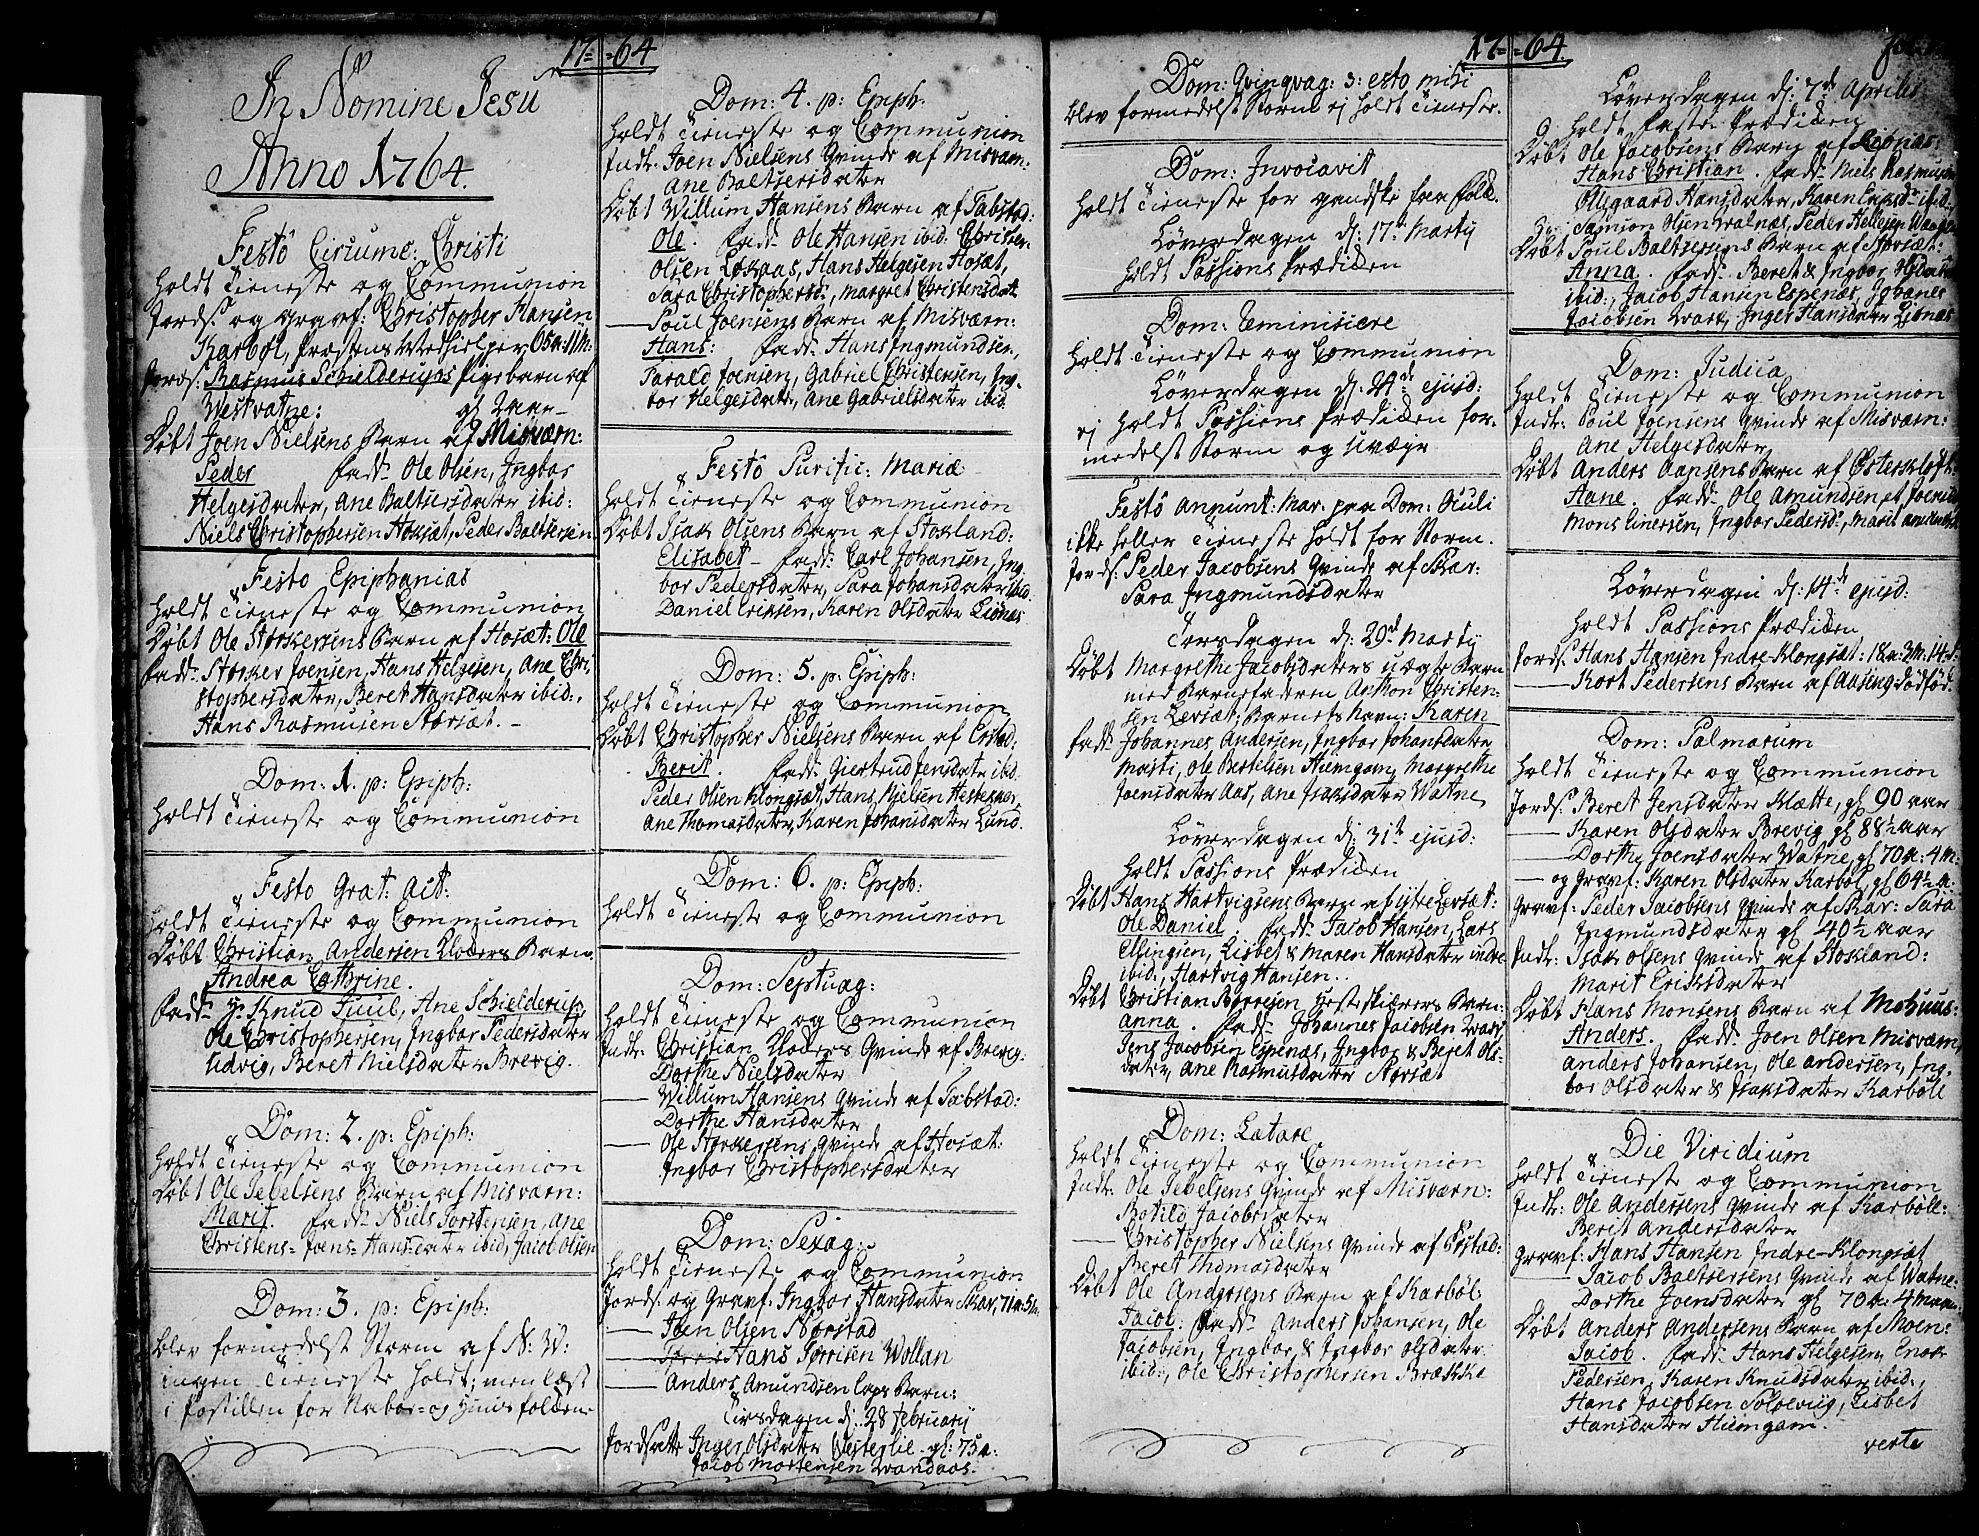 17=
In Nomine Jesu
Anno 1764.
Festô Circumc: Christi
Holdt Tieneste og Communion
Jords. og gravf: Christopher Hansen
Karbøl, Præstens Medhielper 65a: 11m:
Jords: Rasmus Schielderups Pigebarn af
Westvatne: gl
Døbt Joen Nielsens Barn af Misværn:
Peder Fadd. Ole Olsen, Ingbor
Helgesdater, Ane Baltsersdater ibid:
Niels Christophersen Hoksæt, Peder Baltsersen
Festo Epiphanias
Holdt Tieneste og Communion
Døbt Ole Storkersens Barn af Hosæt: Ole
Fadd. Storker Joensen, Hans Helgesen, Ane Chri-
stophersdater, Beret Hansdater ibid:,
Hans Rasmusen Storsæt.
Dom: 1. p: Epiph:
Holdt Tieneste og Communion
Festo Grat: Act:
Holdt Tieneste og Communion
Døbt Christian Andersen Kloders Barn
Andrea Cathrine.
Fadd. Hr Knud Juul, Ane Schielderup,
Ole Christophersen, Ingbor Pedersdater
Udvig, Beret Nielsdater Brevig.
Dom: 2. p: Epiph:
Holdt Tieneste og Communion
Døbt Ole Jebelsens Barn af Misværn:
Marit. Fadd. Niels Torstensen, Ane
Christens= Joens= Hansdater ibid, Jacob Olsen
Dom: 3. p: Epiph:
Blev formedelst Storm af N: W:
ingen Tieneste holdt; men læst
i Postillen for Nabor= og Huus folkene
=64
Dom: 4. p: Epiph:
Holdt Tieneste og Communion
Indl: Joen Nielsens Qvinde af Misværn:
Ane Baltsersdater
Døbt Willum Hansens Barn af Tabstad:
Ole. Fadd. Ole Hansen ibid. Christen
Olsen Løkaas, Hans Helgesen Hosæt,
Sara Christophersd., Margret Christensdat
— Poul Joensens Barn af Misværn:
Hans: Fadd. Hans Ingmundsen,
Tarald Joensen, Gabriel Christensen, Ing-
bor Helgesdater, Ane Gabrielsdater ibid.
Festô Purific: Mariæ
Holdt Tieneste og Communion
Døbt Isak Olsens Barn af Stokland:
Elisabet – Fadd: Carl Johansen, Ing
bor Pedersdater, Sara Johansdater ibid.
Daniel Eriksen, Karen Olsdater Lionæs
Dom: 5. p: Epiph:
Holdt Tieneste og Communion
Døbt Christopher Nielsens Barn af Erstad:
Berit. Fadd. Giertrud Jensdater ibid.
Peder Olsen Klongsæt, Hans Nielsen Hestekiær,
Ane Thomasdater, Karen Johansdater Lund.
Dom: 6. p: Epiph:
Holdt Tieneste og Communion
Dom: Septuag:
Holdt Tieneste og Communion
Indl: Christian Kloders Qvinde af Brevig:
Dorthe Nielsdater
— Willum Hansens Qvinde af Tabstad:
Dorthe Hansdater
— Ole Storkersens Qvinde af Hosæt:
Ingbor Christophersdater
Dom: Sexag:
Holdt Tieneste og Communion
Jords. og Gravf: Ingbor Hansdater Skar, 71a: 5m.
— Joen Olsen Nørstad
— Hans Torrisen Wollan
— Anders Amundsen Laps Barn:
Tirsdagen d: 28 februarij
Jordsatte Inger Olsdater Westerlie. gl: 75a:
Jacob Mortensen Wandaas.
17=
Dom: Qvingvag: s: esto mihi
blev formedelst Storm ej holdt Tieneste.
Dom: Invocavit
Holdt Tieneste for gandske faa Folk.
Løverdagen d: 17de Martij
Holdt Passions Prædiken
Dom: Reminiscere
Holdt Tieneste og Communion
Løverdagen d: 24de ejusd:
ej holdt Passions Prædiken for-
medelst Storm og Uvæyr
Festô Annunt: Mar. paa Dom: Oculi
ikke heller Tieneste holdt for Storm.
Jords: Peder Jacobsens Qvinde af Skar:
Sara Ingmundsdater
Torsdagen d: 29de Martij
Døbt Margrethe Jacobsdaters uægte Barn
med Barnefaderen Anthon Christen-
sen Løvsæt; Barnets Navn: Karen
Fadd. Johannes Andersen, Ingbor Johansdater
Marti, Ole Bertelsen Hiemgam, Margrethe
Joensdater Aas, Ane Isaksdater Watne
Løverdagen d: 31te ejusd:
Holdt Passions Prædiken
Døbt Hans Hartvigsens Barn af ytre Løvsæt:
Ole Daniel. Fadd: Jacob Hansen, Lars
Ellingsen, Lisbet & Maren Hansdater indre
ibid:, Hartvig Hansen.
Døbt Christian Børresen Hestekiærs Barn:
Anna. Fadd. Johannes Jacobsen Wart,
Jens Jacobsen Espenæs, Ingbor & Beret Ols-
dater, Ane Rasmusdater Storsæt
Dom: Lætare
Holdt Tieneste og Communion
Indl: Ole Jebelsens Qvinde af Misværn:
Botild Jacobsdater
— Christopher Nielsens Qvinde af Erstad:
Beret Thomasdater
Døbt Ole Andersens Barn af Karbøl
Jacob: Fadd. Anders Johansen, Ole
Jacobsen, Ingbor & Ingbor Olsdater
ibid:, Ole Christophersen Brække
=64.
Løverdagen d: 7de Aprilis
Holdt Faste Prædiken
Døbt Ole Jacobsens Barn af Lionæs:
Hans Christian. Fadd. Niels Rasmusen
Ollegaard Hansdater, Karen Larsd. ibid.
Samson Olsen Watnæs, Peder Hellesen
Døbt Poul Baltsersens Barn af Storsæt:
Anna. Fadd. Beret & Ingbor
ibid:, Jacob Hansen Espenæs, Johanes
Jacobsen Wart, Inger Hansdater Lionæs
Dom: Judica
Holdt Tieneste og Communion
Indl: Poul Joensens Qvinde af Misværn:
Ane Helgesdater
Døbt Anders Aansens Barn af Østerkløft:
Aane. Fadd. Ole Amundsen
Mons Einersen, Ingbor Pedersd., Marit
Løverdagen d: 14de ejusd:
Holdt Passions Prædiken
Jords. Hans Hansen Indre-Klongsæt: 18a: 3m: 14d.
— Kort Pedersens Barn af Aaseng dødfød.
Dom: Palmarum
Holdt Tieneste og Communion
Jords. Beret Jensdater Klætte, gl 90 aar
— Karen Olsdater Brevig gl 88½ aar
— Dorthe Joensdater Watne, gl 70a: 4m:
— og Gravf: Karen Olsdater Karbøl, gl 64½ a:
Gravf. Peder Jacobsens Qvinde af Skar: Sara
Ingmundsdater gl 40½ aar
Indl: Isak Olsens Qvinde af Stokland:
Marit Eriksdater
Døbt Hans Monsens Barn af Mohuus:
Anders. Fadd. Joen Olsen Misværn,
Anders Johansen, Ole Andersen, Ing-
bor Olsdater & Isaksdater Karbøll
Die Viridium
Holdt Tieneste og Communion
Indl: Ole Andersens Qvinde af Karbøll:
Berit Andersdater
Gravf: Hans Hansen Indre-Klongsæt
— Jacob Baltsersens Qvinde af Watne:
Dorthe Joensdater gl 70a: 4 maan.
Døbt Anders Andersens Barn af Moen:
Jacob. Fadd. Hans Helgesen, Enok
Pedersen, Karen Knudsdater ibid:,
Hans Jacobsen Soløevig, Lisbet
Hansdater Hiemgam.
verte